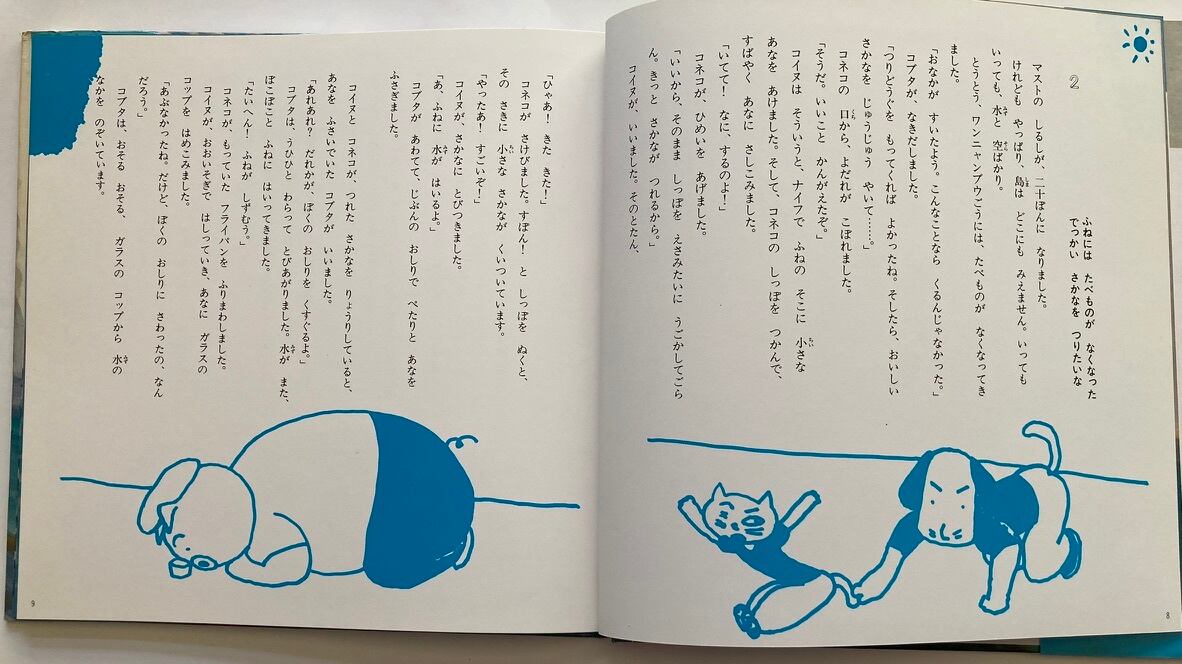 2
ふねには　たべものが　なくなった
でっかい　さかなを　つりたいな
マストの　しるしが、二十ぽんに　なりました。
けれども　やっぱり、島は　どこにも　みえません。いっても
いっても、水と　空ばかり。
とうとう、ワンニャンブウごうには、たべものが　なくなってき
ました。
「おなかが　すいたよう。こんなことなら　くるんじゃなかった。」
コブタが、なきだしました。
「つりどうぐを　もってくれば　よかったね。そしたら、おいしい
さかなを　じゅうじゅう　やいて……。」
コネコの　口から、よだれが　こぼれました。
「そうだ。いいこと　かんがえたぞ。」
コイヌは　そういうと、ナイフで　ふねの　そこに　小さな
あなを　あけました。そして、コネコの　しっぽを　つかんで、
すばやく　あなに　さしこみました。
「いてて！　なに、するのよ！」
コネコが、ひめいを　あげました。
「いいから、そのまま　しっぽを　えさみたいに　うごかしてごら
ん。きっと　さかなが　つれるから。」
コイヌが、いいました。そのとたん、
8
「ひゃあ！　きた　きた！」
コネコが　さけびました。すぽん！　と　しっぽを　ぬくと、
その　さきに　小さな　さかなが　くいついています。
「やったあ！　すごいぞ！」
コイヌが、さかなに　とびつきました。
「あ、ふねに　水が　はいるよ。」
コブタが　あわてて、じぶんの　おしりで　ぺたりと　あなを
ふさぎました。
コイヌと　コネコが、つれた　さかなを　りょうりしていると、
あなを　ふさいでいた　コブタが　いいました。
「あれあれ？　だれかが、ぼくの　おしりを　くすぐるよ。」
コブタは、うひひと　わらって　とびあがりました。水が　また、
ぼこぼこと　ふねに　はいってきました。
「たいへん！　ふねが　しずむう。」
コネコが、もっていた　フライパンを　ふりまわしました。
コイヌが、おおいそぎで　はしっていき、あなに　ガラスの
コップを　はめこみました。
「あぶなかったね。だけど、ぼくの　おしりに　さわったの、なん
だろう。」
コブタは、おそる　おそる、ガラスの　コップから　水の
なかを　のぞいています。
9